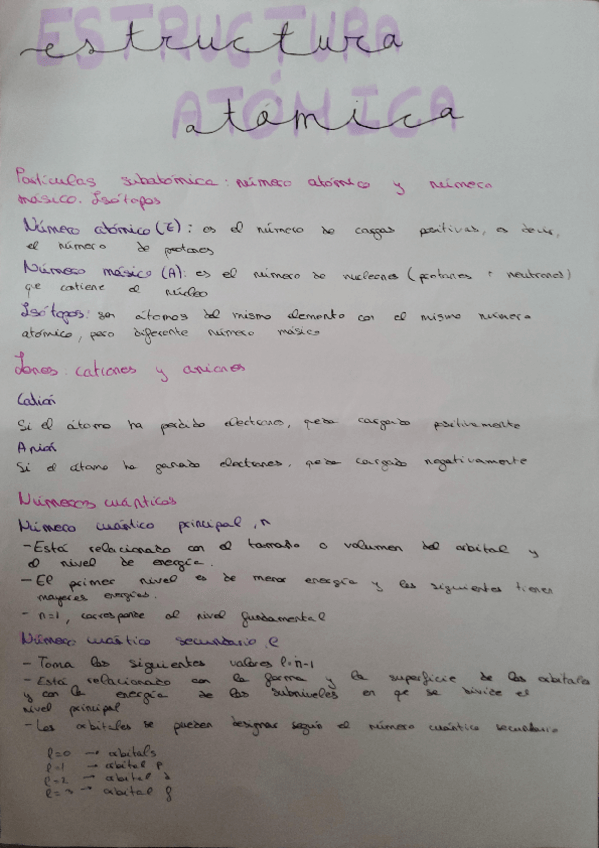 ESTRUCTURA
estructura
ATÓMICA
atómica
Partículas subatómica: número atómico y número
másico. Isótopos
Número atómico (Z): es el número de cargas positivas, es decir,
el número de protones
Número másico (A): es el número de nucleones (protones + neutrones)
qe contiene el núcleo
Isótopos: son átomos del mismo elemento con el mismo número
atómico, pero diferente número másico
Iones: cationes y aniones
Catión
Si el átomo ha perdido electrones, queda cargado positivamente
Anión
Si el átomo ha ganado electrones, queda cargado negativamente
Números cuánticos
Número cuántico principal, n
- Está relacionado con el tamaño o volumen del orbital y
el nivel de energía.
- El primer nivel es de menor energía y los siguientes tienen
mayores energías.
- n=1, corresponde al nivel fundamental
Número cuántico secundario, l
- Toma los siguientes valores l=n-1
- Está relacionado con la forma y la superficie de los orbitales
y con la energía de los subniveles en qe se divide el
nivel principal
- Los orbitales se pueden designar según el número cuántico secundario
l=0 → orbital s
l=1 → orbital p
l=2 → orbital d
l=3 → orbital f